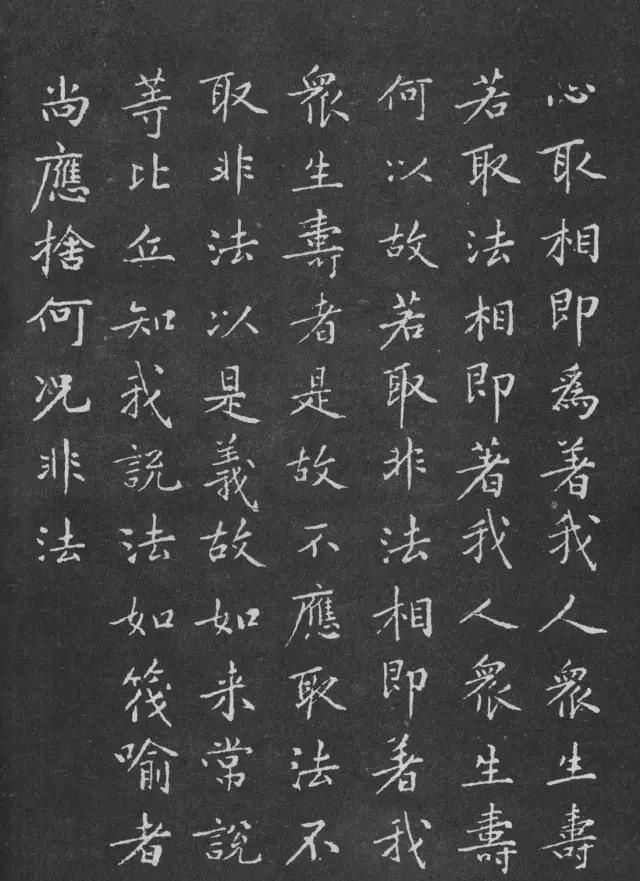 心取相即為著我人眾生壽
若取法相即著我人眾生壽
何以故若取非法相即著我
眾生壽者是故不應取法不
取非法以是義故如来常說
䓁比丘知我說法如筏喻者
尚應捨何況非法